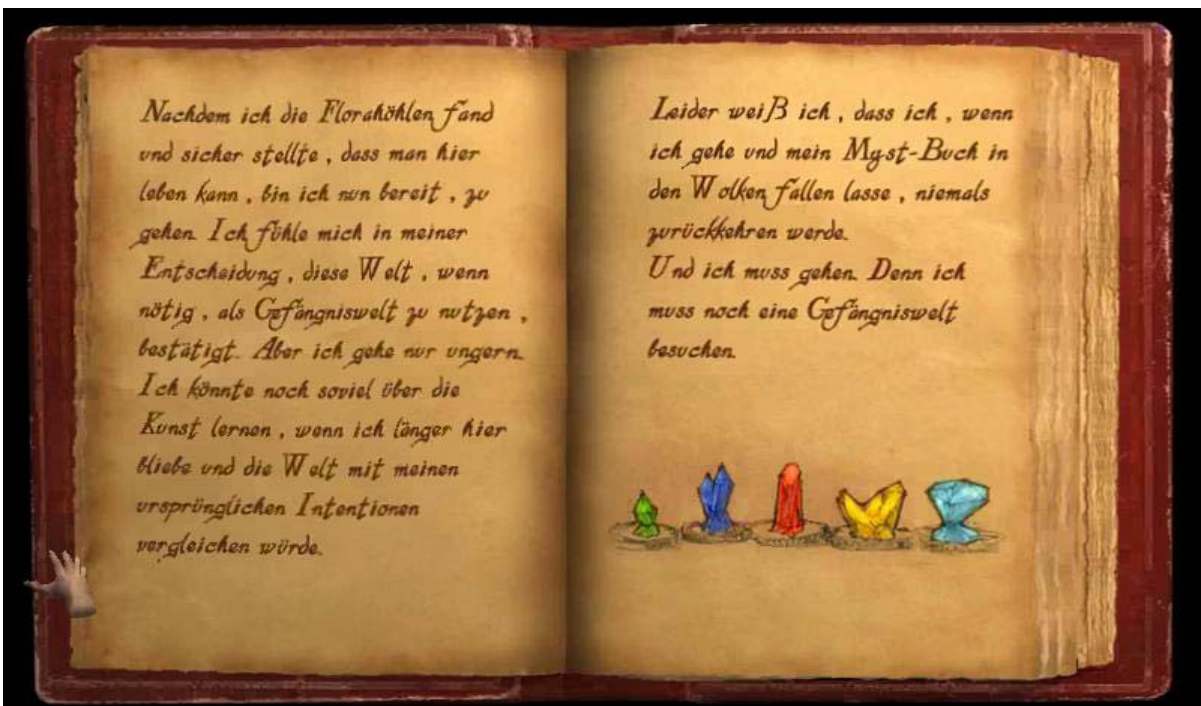 Nachdem ich die Florahöhlen fand
und sicher stellte , dass man hier
leben kann , bin ich nun bereit , zu
gehen. Ich fühle mich in meiner
Entscheidung , diese Welt , wenn
nötig , als Gefängniswelt zu nutzen ,
bestätigt. Aber ich gehe nur ungern.
Ich könnte noch soviel über die
Kunst lernen , wenn ich länger hier
bliebe und die Welt mit meinen
ursprünglichen Intentionen
vergleichen würde.
Leider weiß ich , dass ich , wenn
ich gehe und mein Myst-Buch in
den Wolken fallen lasse , niemals
zurückkehren werde.
Und ich muss gehen. Denn ich
muss noch eine Gefängniswelt
besuchen.